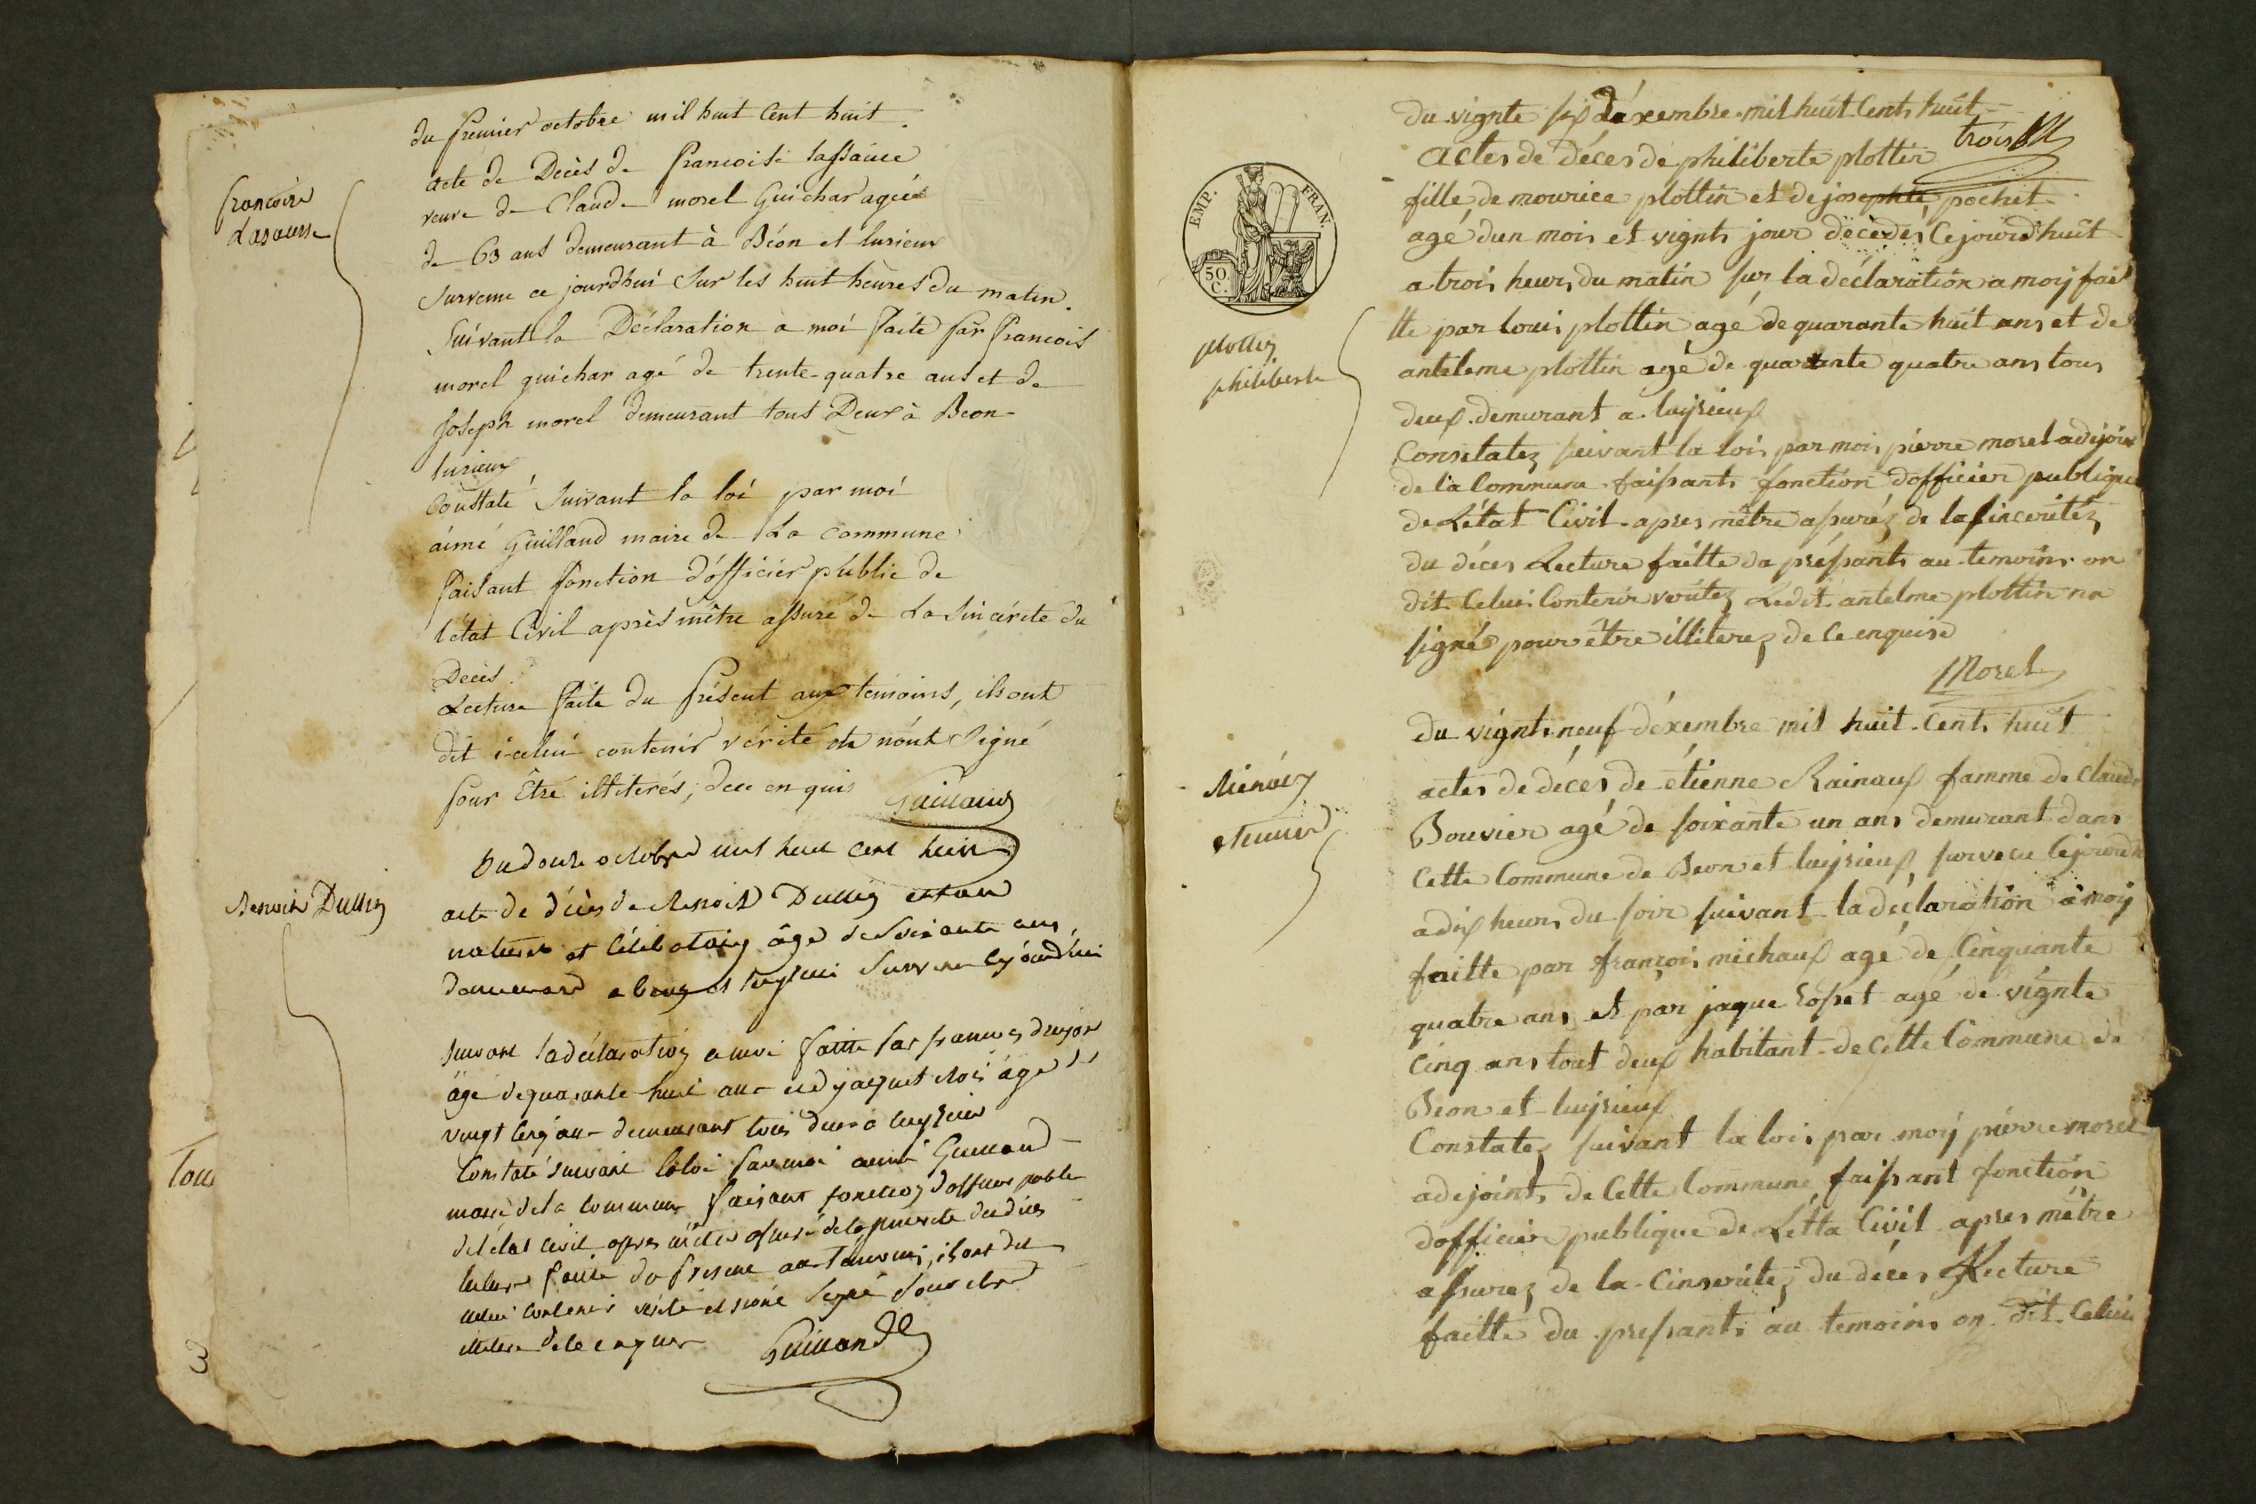 françoise
Lasausse
du premier octobre mil huit Cent huit
acte de Deces de francoise sassauce
veuve de Claude morel Guichar agée
de 63 ans demeurant à Béon et lurieux
survenu ce jourdhui sur les huit heures du matin.
Suivant la Déclaration a moi faite par francois
morel guichar agé de trente-quatre ans et de
Joseph morel demeurant tous Deux à Beon
lurieux
Constaté Suivant la loi par moi
aimé Guilland maire de La commune
faisant fonction d'officier public de
l'état Civil après mêtre assuré de La Sincérité du
Deces.
Lecture faite du présent aux temoins, ils ont
dit icelui contenir vérité et n'ont Signé
pour Être illiterés, de ce enquis
Guilland
Benoit Dullin
Du douze octobre mil huit cent huit
acte de décès de Benoit Dullin enfan
naturel et Célibataire âgé de soixante ans
demeurand a beon et luyrieu survenu cejourdhui
suivant la déclaration a moi faitte par francois dujon
âgé de quarante huit ans et de jacquet âgé
vingt cinq ans demeurant tous deux a luyrieu
Constaté suivant la loi par moi aimé Guilland
maire de la commune faisant fonction d'officier public
de l'état civil apres mêtre assuré de la sincerité du déces
lecture faite du present aux temoins, ils ont dit
celui contenir vérité et n'ont signé pour etre
illiteré de ce enquis
Guilland
EMP. FRAN.
50 C.
plottin
philiberte
du vignte six déxembre mil huit Cents huit
trois
actes de déces de philiberte plottin
fille de mourice plottin et de josephte pochet
agé d'un mois et vignts jour décèdés Cejourdhuit
a trois heurs du matin sur la déclaration a moy fait
tte par louis plottin agé de quarante huit ans et de
anteleme plottin agé de quarante quatre ans tous
deux demurant a luyrieux
Constatez suivant la lois par mois pierre morel adjoin
de la Commune faissants fonction dofficier publique
de Létat Civil apres mêtre assuréz de la sinceritéz
du déces Lecture faitte du préssants au temoins on
dit Celui Contenir véritéz Ledit antelme plottin na
signé pour être illiterez de Ce enquise
Morel
Rienaux
etienne
du vignts neuf déxembre mil huit Cents huit
actes de déces de étienne Rainaux famme de Claude
Bouvier agé de soixante un ans demurant dans
Cette Commune de Beon et luyrieux survenu Cejourdh
a dix heurs du soir suivant la déclaration a moy
faitte par françois michaux agé de Cinquante
quatre ans et par jaque agé de vignte
Cinq ans tout deux habitant de Cette Commune de
Beon et luyrieux
Constatez suivant la lois par moy pierre morel
adejoints de Cette Commune faissant fonction
dofficier publique de Létta Civil apres mêtre
assurez de la Cinseritez du déces Lecture
faitte du pressants au temoins on dit Celui